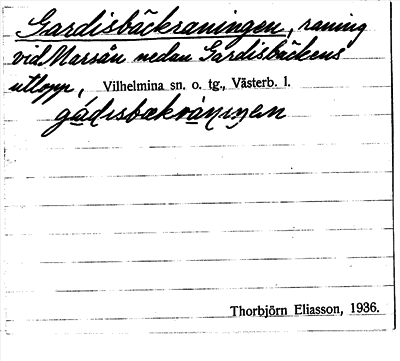 Gardisbäckraningen, raning
vid Marsån nedan Gardisbäckens
utlopp, Vilhelmina sn. o. tg., Västerb. l.
gádisbækràṇiŋen
Thorbjörn Eliasson, 1936.